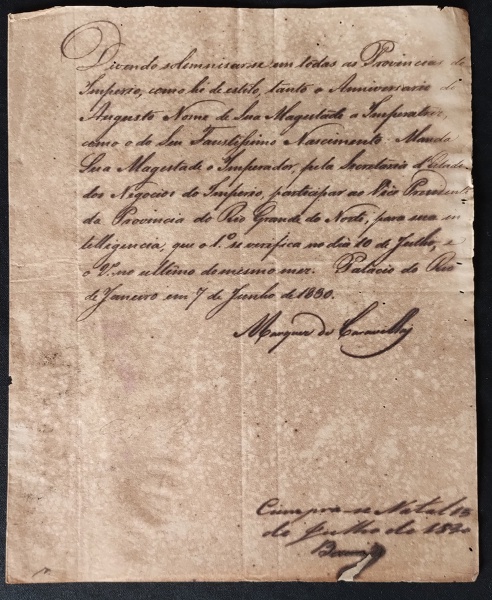 Devendo solemnisar-se em todas as Provincias do
Imperio, como he de estilo, tanto o Anniversario do
Augusto Nome de Sua Magestade a Imperatriz,
como o do Seu Faustissimo Nascimento: Manda
Sua Magestade o Imperador, pela Secretaria d'Estado
dos Negocios do Imperio, participar ao Vice Presidente
da Provincia do Rio Grande do Norte, para sua in
telligencia, que o 1.º se verifica no dia 10 de Julho, e
o no ultimo do mesmo mez. Palacio do Rio
de Janeiro em 7 de Junho de 1830.
Marquez de Caravellas
Cumpra-se Natal
de Julho de 1830